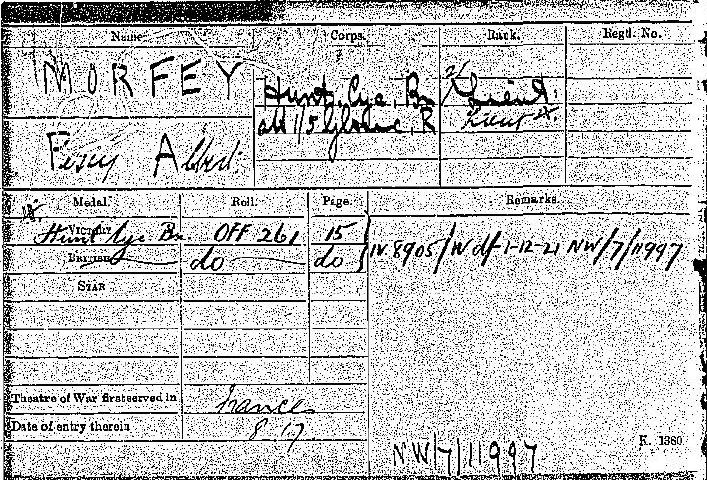 Name. Corps. Rank. Regtl. No.
MORFEY Hunt. Cyc. Bn 2/Lieut.
att 1/5 Glouc. R Lieut
Percy Albert.
Medal. Roll. Page. Remarks.
VICTORY Hunt Cyc Bn OFF 261 15 IV 8905/W df 1-12-21 NW/7/11997
BRITISH do do
STAR
Theatre of War first served in France
Date of entry therein 8.17.
K. 1380
NW/7/11997